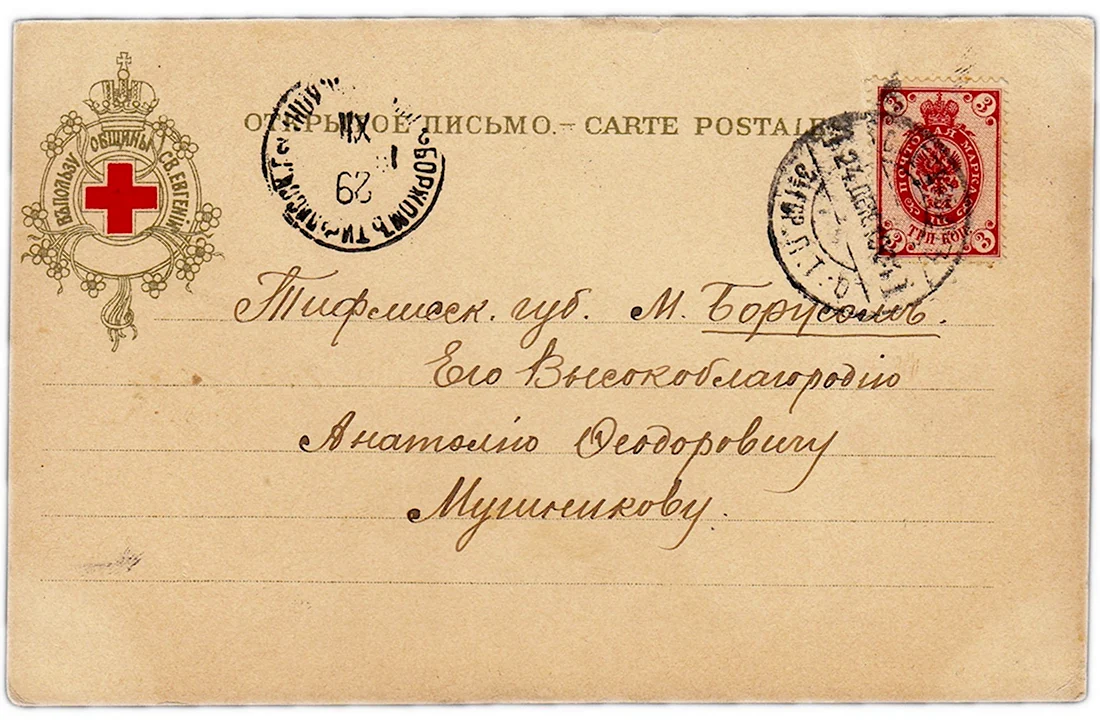 ВЪ ПОЛЬЗУ ОБЩИНЫ СВ. ЕВГЕНІИ
ОТКРЫТОЕ ПИСЬМО. — CARTE POSTALE
БОРЖОМЪ ТИФЛИССК. Г.
XII
29
24 ДЕК.
3 3
ПОЧТОВАЯ МАРКА
ТРИ КОП.
3 3
Тифлисск. губ. М. Боржомъ.
Его Высокоблагородію
Анатолію Ѳеодоровичу
Мушникову.